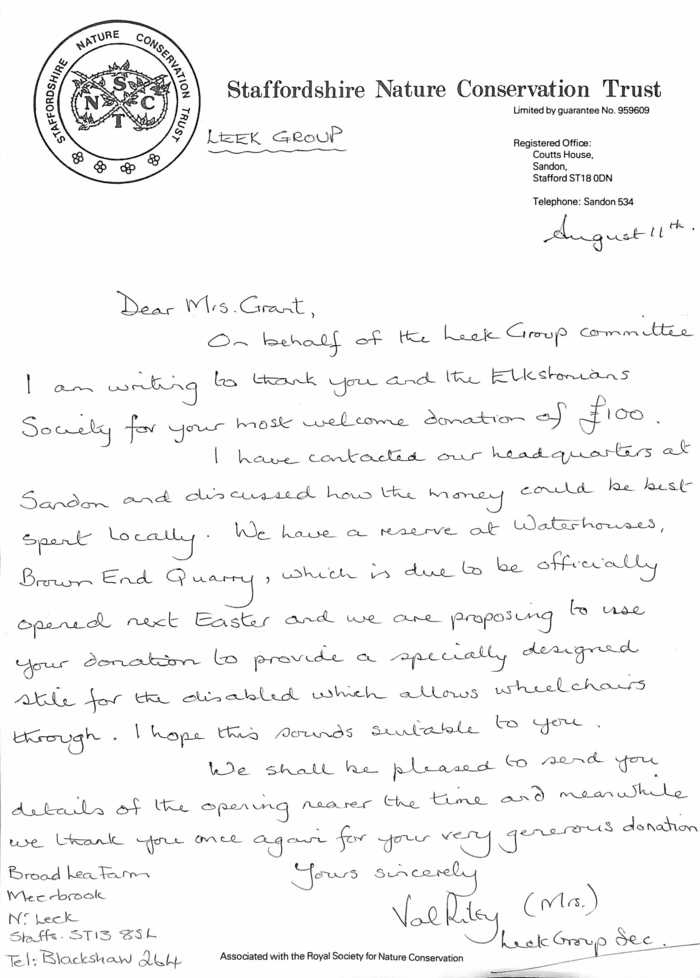 STAFFORDSHIRE NATURE CONSERVATION TRUST
S
N C
T
Staffordshire Nature Conservation Trust
Limited by guarantee No. 959609
LEEK GROUP
Registered Office:
Coutts House,
Sandon,
Stafford ST18 0DN
Telephone: Sandon 534
August 11th.
Dear Mrs. Grant,
On behalf of the Leek Group committee
I am writing to thank you and the Elkstonians
Society for your most welcome donation of £100.
I have contacted our headquarters at
Sandon and discussed how the money could be best
spent locally. We have a reserve at Waterhouses,
Brown End Quarry, which is due to be officially
opened next Easter and we are proposing to use
your donation to provide a specially designed
stile for the disabled which allows wheelchairs
through. I hope this sounds suitable to you.
We shall be pleased to send you
details of the opening nearer the time and meanwhile
we thank you once again for your very generous donation
Yours sincerely
Val Riley (Mrs.)
Leek Group Sec.
Broad Lea Farm
Meerbrook
Nr Leek
Staffs. ST13 8SL
Tel: Blackshaw 264
Associated with the Royal Society for Nature Conservation